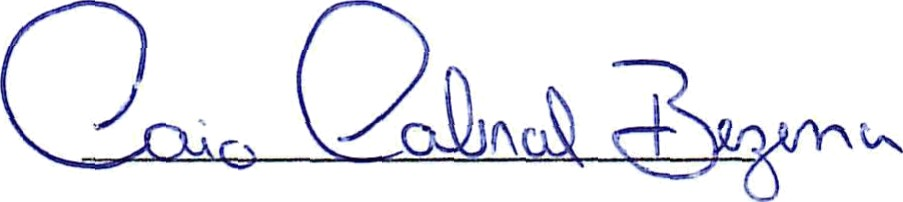 Caio Cabral Bezerra